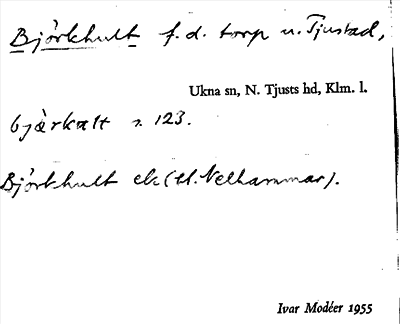 Björkhult f.d. torp u. Tjustad,
Ukna sn, N. Tjusts hd, Klm. l.
bjə̀rkəlt s. 123.
Björkhult ek (tl. Nelhammar).
Ivar Modéer 1955